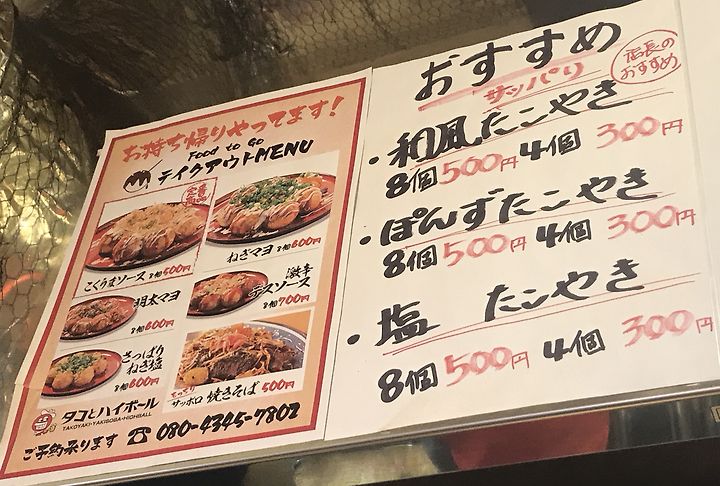 お持ち帰りやってます！
Food to Go
テイクアウトMENU
こくうまソース 8個500円
ねぎマヨ 8個600円
明太マヨ
8個600円
激辛
デスソース
8個700円
さっぱり
ねぎ塩
8個600円
もっちり
サッポロ 焼きそば 500円
タコとハイボール
TAKOYAKI・YAKISOBA・HIGHBALL
ご予約承ります ☎ 080-4345-7802
おすすめ
店長の
おすすめ
サッパリ
・和風たこやき
8個500円 4個 300円
・ぽんずたこやき
8個500円 4個 300円
・塩 たこやき
8個500円 4個 300円